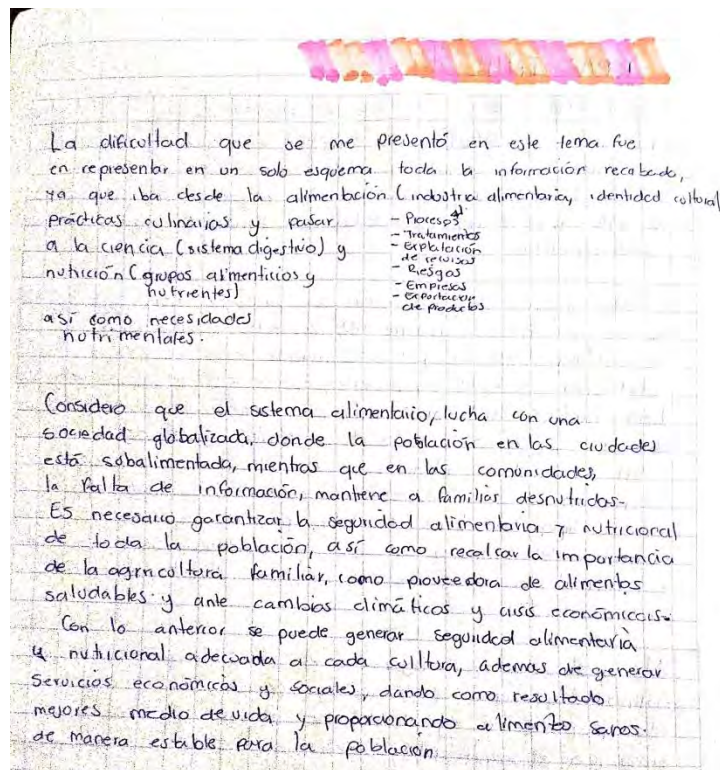 La dificultad que se me presentó en este tema fue
en representar en un solo esquema toda la información recabada,
ya que iba desde la alimentación (industria alimentaria, identidad cultural
prácticas culinarias y pasar
a la ciencia (sistema digestivo) y
nutrición (grupos alimenticios y
nutrientes)
así como necesidades
nutrimentales.
- Procesos
- Tratamientos
- Explotación
de recursos
- Riesgos
- Empresas
- Exportación
de productos
Considero que el sistema alimentario, lucha con una
sociedad globalizada, donde la población en las ciudades
está sobalimentada, mientras que en las comunidades,
la falta de información, mantiene a familias desnutridas.
Es necesario garantizar la seguridad alimentaria y nutricional
de toda la población, así como recalcar la importancia
de la agricultura familiar, como proveedora de alimentos
saludables y ante cambios climáticos y crisis económicas.
Con lo anterior se puede generar seguridad alimentaria
y nutricional adecuada a cada cultura, ademas de generar
servicios económicos y sociales, dando como resultado
mejores medio de vida, y proporcionando alimento sanos.
de manera estable para la población